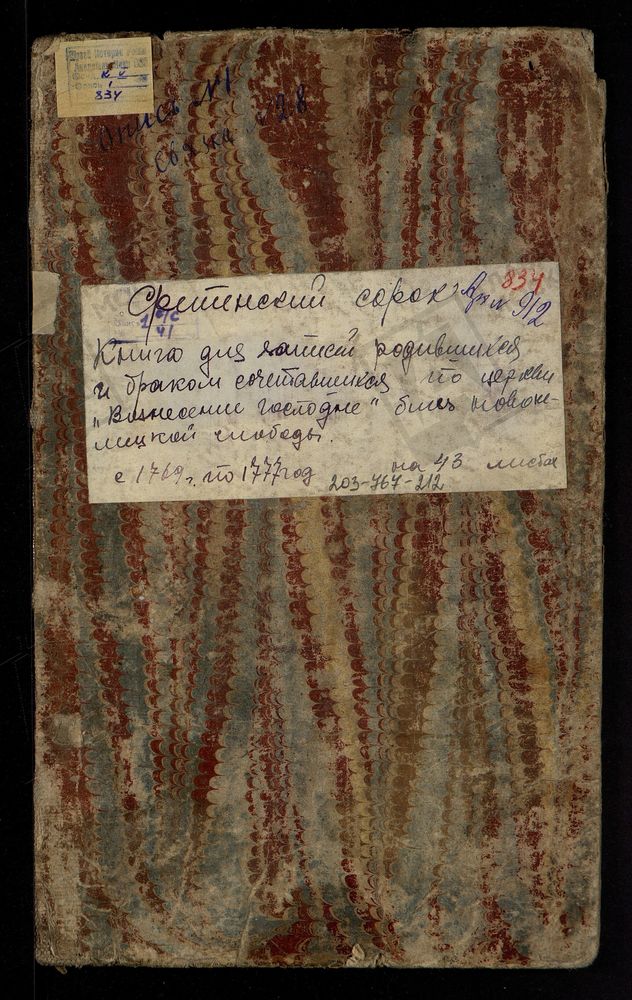 834
Опись №1
Связка № 28
Сретенский сорок
834
Арх № 912
Книга для записи родившихся
и браком сочетавшихся по церкви
„Вознесение Господне" близ Новоме-
щанской слободы.
с 1769 г. по 1777 год
на 43 листах
203-767-212